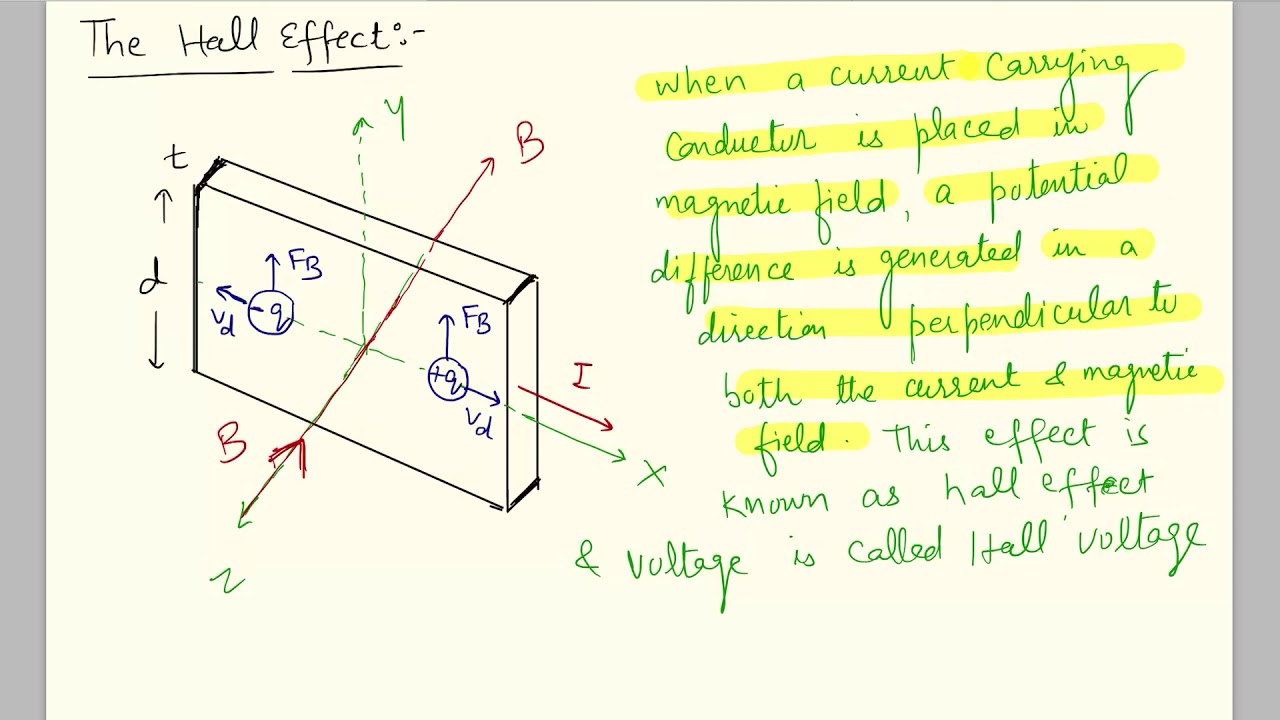 The Hall Effect:-
when a current carrying
conductor is placed in
magnetic field, a potential
difference is generated in a
direction perpendicular to
both the current & magnetic
field. This effect is
known as hall effect
& voltage is called Hall voltage
Y
B
t
d
FB
-q
vd
FB
+q
vd
I
X
B
Z